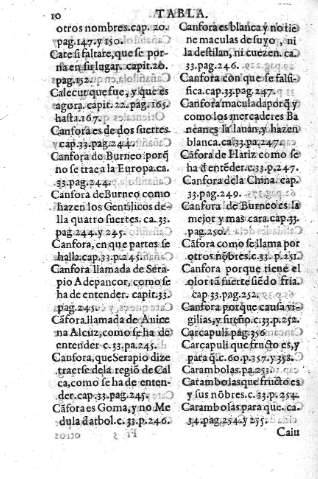 10 TABLA.
otros nombres.cap. 20.
pag.147.y 150.
Cate si faltare, que se por-
na en su lugar. capit.20.
pag.152.
Calecut que fue, y que es
agora. capit. 22. pag.165.
hasta.167.
Canfora es de dos suertes.
cap.33.pag.244.
Canfora do Burneo porq̃
no se trac a la Europa.ca.
33.pag.244.
Canfora de Burneo como
hazen los Gentilicos de-
lla quatro suertes. ca. 33.
pag.244.y 245.
Canfora, en que partes se
halla.cap.33.pa.245.
Canfora llamada de Sera-
pio Adepancor, como se
ha de entender. capit.33.
pag.245.
Cãfora llamada de Auice
na Alcuz, como se ha de
entender c.33.pa.245.
Canfora, que Serapio dize
traerse de la regiõ de Cal
ca, como se ha de enten-
der.cap.33.pag.245.
Cãfora es Goma, y no Me
dula d'arbol.c.33.p.246.
Canfora es blanca y no tie
ne maculas de suyo, ni
la destilan, ni cuezen. ca.
33.pag.246.
Canfora con que se falsi-
fica.cap.33.pag.247.
Canfora maculada porq̃ y
como los mercaderes Ba
neanes la lauan, y hazen
blanca.ca 33.pa.247.
Cãfora de Hariz como se
ha d'entẽder.c.33.p.247.
Canfora de la China. cap.
33.pag.249.
Canfora de Burneo es la
mejor y mas cara.cap.33.
pag.250.
Cãfora como se llama por
otros nõbres.c.33. p.251.
Canfora porque tiene el
olor tã fuerte siẽdo fria.
cap 33.pag.252.
Canfora porque causa vi-
gilias, y sueño.c.33.p.252.
Carcapuli.pag.356
Carcapuli que fructo es, y
para q̃.c.60.p.357.y 358.
Carambolas.pa.253.
Carambolas que fructo es
y sus nõbres.c.33.p.254.
Carambolas para que. ca.
34.pag.254.y 255.
Caiu